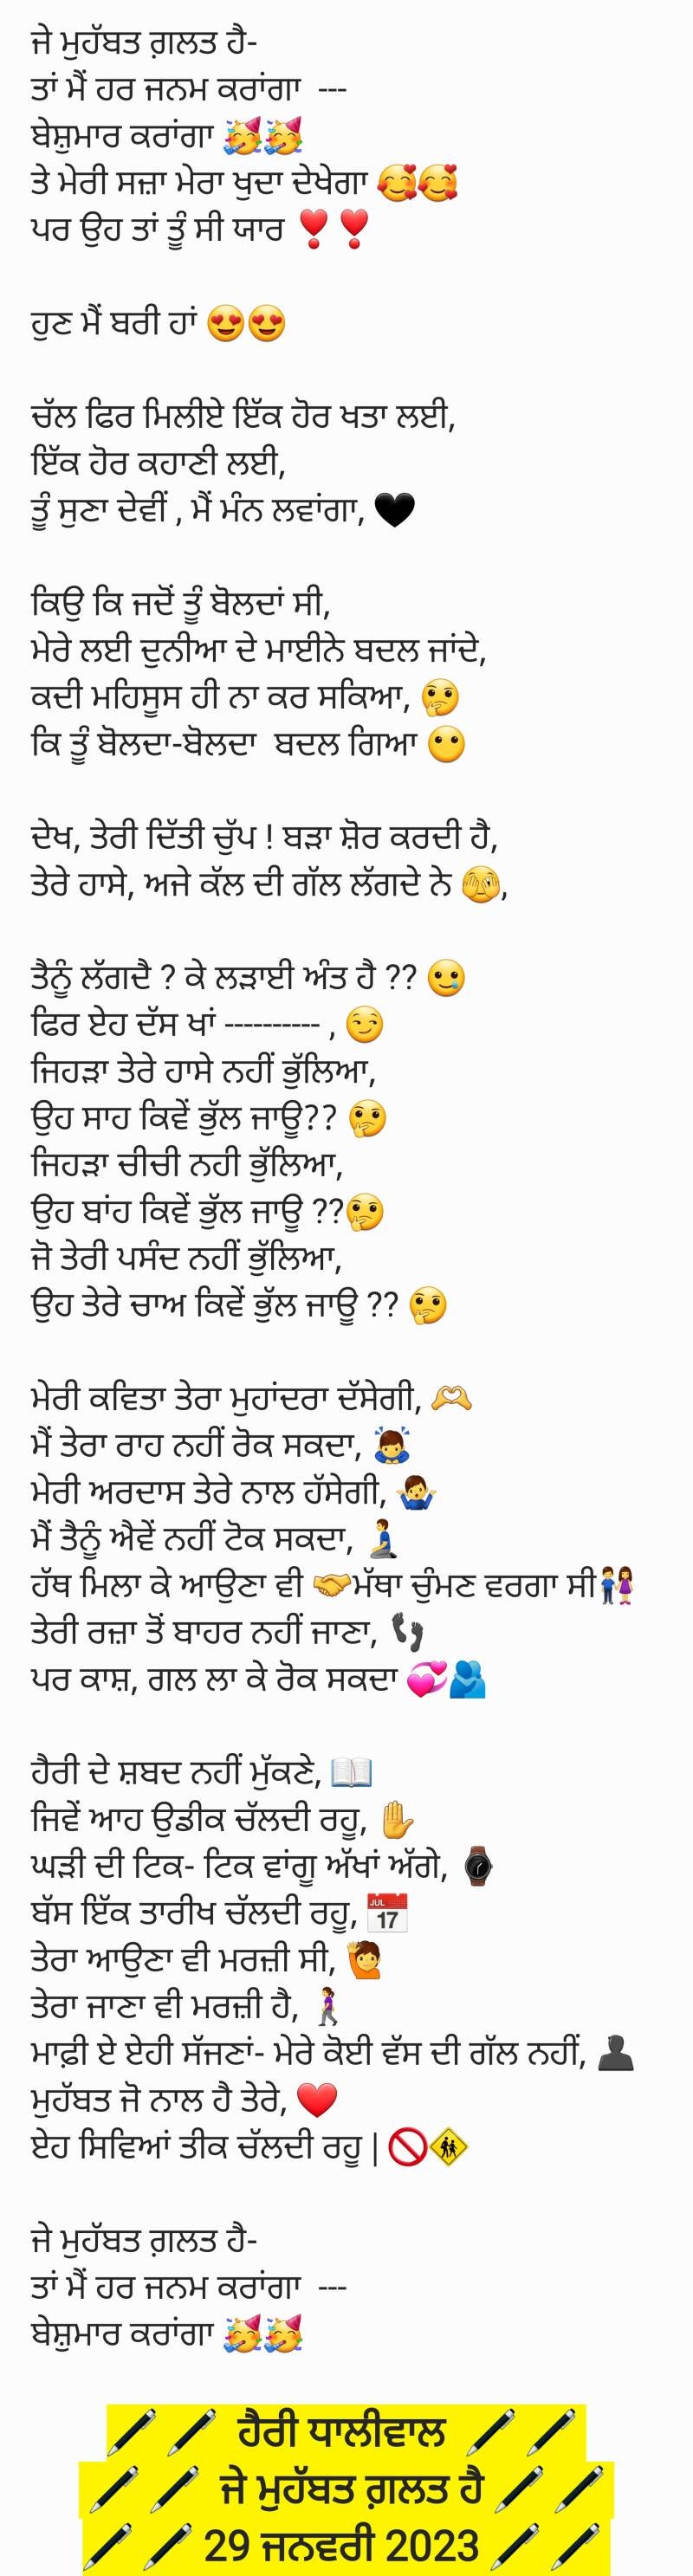 ਜੇ ਮੁਹੱਬਤ ਗ਼ਲਤ ਹੈ-
ਤਾਂ ਮੈਂ ਹਰ ਜਨਮ ਕਰਾਂਗਾ  ---
ਬੇਸ਼ੁਮਾਰ ਕਰਾਂਗਾ 🥳🥳
ਤੇ ਮੇਰੀ ਸਜ਼ਾ ਮੇਰਾ ਖੁਦਾ ਦੇਖੇਗਾ 🥰🥰
ਪਰ ਉਹ ਤਾਂ ਤੂੰ ਸੀ ਯਾਰ ❣️❣️
ਹੁਣ ਮੈਂ ਬਰੀ ਹਾਂ 😍😍
ਚੱਲ ਫਿਰ ਮਿਲੀਏ ਇੱਕ ਹੋਰ ਖਤਾ ਲਈ,
ਇੱਕ ਹੋਰ ਕਹਾਣੀ ਲਈ,
ਤੂੰ ਸੁਣਾ ਦੇਵੀਂ , ਮੈਂ ਮੰਨ ਲਵਾਂਗਾ, 🖤
ਕਿਉ ਕਿ ਜਦੋਂ ਤੂੰ ਬੋਲਦਾਂ ਸੀ,
ਮੇਰੇ ਲਈ ਦੁਨੀਆ ਦੇ ਮਾਈਨੇ ਬਦਲ ਜਾਂਦੇ,
ਕਦੀ ਮਹਿਸੂਸ ਹੀ ਨਾ ਕਰ ਸਕਿਆ, 🤔
ਕਿ ਤੂੰ ਬੋਲਦਾ-ਬੋਲਦਾ  ਬਦਲ ਗਿਆ 😶
ਦੇਖ, ਤੇਰੀ ਦਿੱਤੀ ਚੁੱਪ ! ਬੜਾ ਸ਼ੋਰ ਕਰਦੀ ਹੈ,
ਤੇਰੇ ਹਾਸੇ, ਅਜੇ ਕੱਲ ਦੀ ਗੱਲ ਲੱਗਦੇ ਨੇ 🫣,
ਤੈਨੂੰ ਲੱਗਦੈ ? ਕੇ ਲੜਾਈ ਅੰਤ ਹੈ ?? 🥲
ਫਿਰ ਏਹ ਦੱਸ ਖਾਂ ---------- , 😏
ਜਿਹੜਾ ਤੇਰੇ ਹਾਸੇ ਨਹੀਂ ਭੁੱਲਿਆ,
ਉਹ ਸਾਹ ਕਿਵੇਂ ਭੁੱਲ ਜਾਊ?? 🤔
ਜਿਹੜਾ ਚੀਚੀ ਨਹੀ ਭੁੱਲਿਆ,
ਉਹ ਬਾਂਹ ਕਿਵੇਂ ਭੁੱਲ ਜਾਊ ??🤔
ਜੋ ਤੇਰੀ ਪਸੰਦ ਨਹੀਂ ਭੁੱਲਿਆ,
ਉਹ ਤੇਰੇ ਚਾਅ ਕਿਵੇਂ ਭੁੱਲ ਜਾਊ ?? 🤔
ਮੇਰੀ ਕਵਿਤਾ ਤੇਰਾ ਮੁਹਾਂਦਰਾ ਦੱਸੇਗੀ, 🫶
ਮੈਂ ਤੇਰਾ ਰਾਹ ਨਹੀਂ ਰੋਕ ਸਕਦਾ, 🙇‍♂️
ਮੇਰੀ ਅਰਦਾਸ ਤੇਰੇ ਨਾਲ ਹੱਸੇਗੀ, 🤷‍♂️
ਮੈਂ ਤੈਨੂੰ ਐਵੇਂ ਨਹੀਂ ਟੋਕ ਸਕਦਾ, 🧎‍♂️
ਹੱਥ ਮਿਲਾ ਕੇ ਆਉਣਾ ਵੀ 🤝ਮੱਥਾ ਚੁੰਮਣ ਵਰਗਾ ਸੀ👫
ਤੇਰੀ ਰਜ਼ਾ ਤੋਂ ਬਾਹਰ ਨਹੀਂ ਜਾਣਾ, 👣
ਪਰ ਕਾਸ਼, ਗਲ ਲਾ ਕੇ ਰੋਕ ਸਕਦਾ 💞🫂
ਹੈਰੀ ਦੇ ਸ਼ਬਦ ਨਹੀਂ ਮੁੱਕਣੇ, 📖
ਜਿਵੇਂ ਆਹ ਉਡੀਕ ਚੱਲਦੀ ਰਹੂ, ✋
ਘੜੀ ਦੀ ਟਿਕ- ਟਿਕ ਵਾਂਗੂ ਅੱਖਾਂ ਅੱਗੇ, ⌚
ਬੱਸ ਇੱਕ ਤਾਰੀਖ ਚੱਲਦੀ ਰਹੂ, 📅
ਤੇਰਾ ਆਉਣਾ ਵੀ ਮਰਜ਼ੀ ਸੀ, 🙋
ਤੇਰਾ ਜਾਣਾ ਵੀ ਮਰਜ਼ੀ ਹੈ, 🚶‍♀️
ਮਾਫ਼ੀ ਏ ਏਹੀ ਸੱਜਣਾਂ- ਮੇਰੇ ਕੋਈ ਵੱਸ ਦੀ ਗੱਲ ਨਹੀਂ, 👤
ਮੁਹੱਬਤ ਜੋ ਨਾਲ ਹੈ ਤੇਰੇ, ❤️
ਏਹ ਸਿਵਿਆਂ ਤੀਕ ਚੱਲਦੀ ਰਹੂ | 🚫🚸
ਜੇ ਮੁਹੱਬਤ ਗ਼ਲਤ ਹੈ-
ਤਾਂ ਮੈਂ ਹਰ ਜਨਮ ਕਰਾਂਗਾ  ---
ਬੇਸ਼ੁਮਾਰ ਕਰਾਂਗਾ 🥳🥳
🖊️🖊️ ਹੈਰੀ ਧਾਲੀਵਾਲ 🖊️🖊️
🖊️🖊️ ਜੇ ਮੁਹੱਬਤ ਗ਼ਲਤ ਹੈ🖊️🖊️
🖊️🖊️ 29 ਜਨਵਰੀ 2023 🖊️🖊️